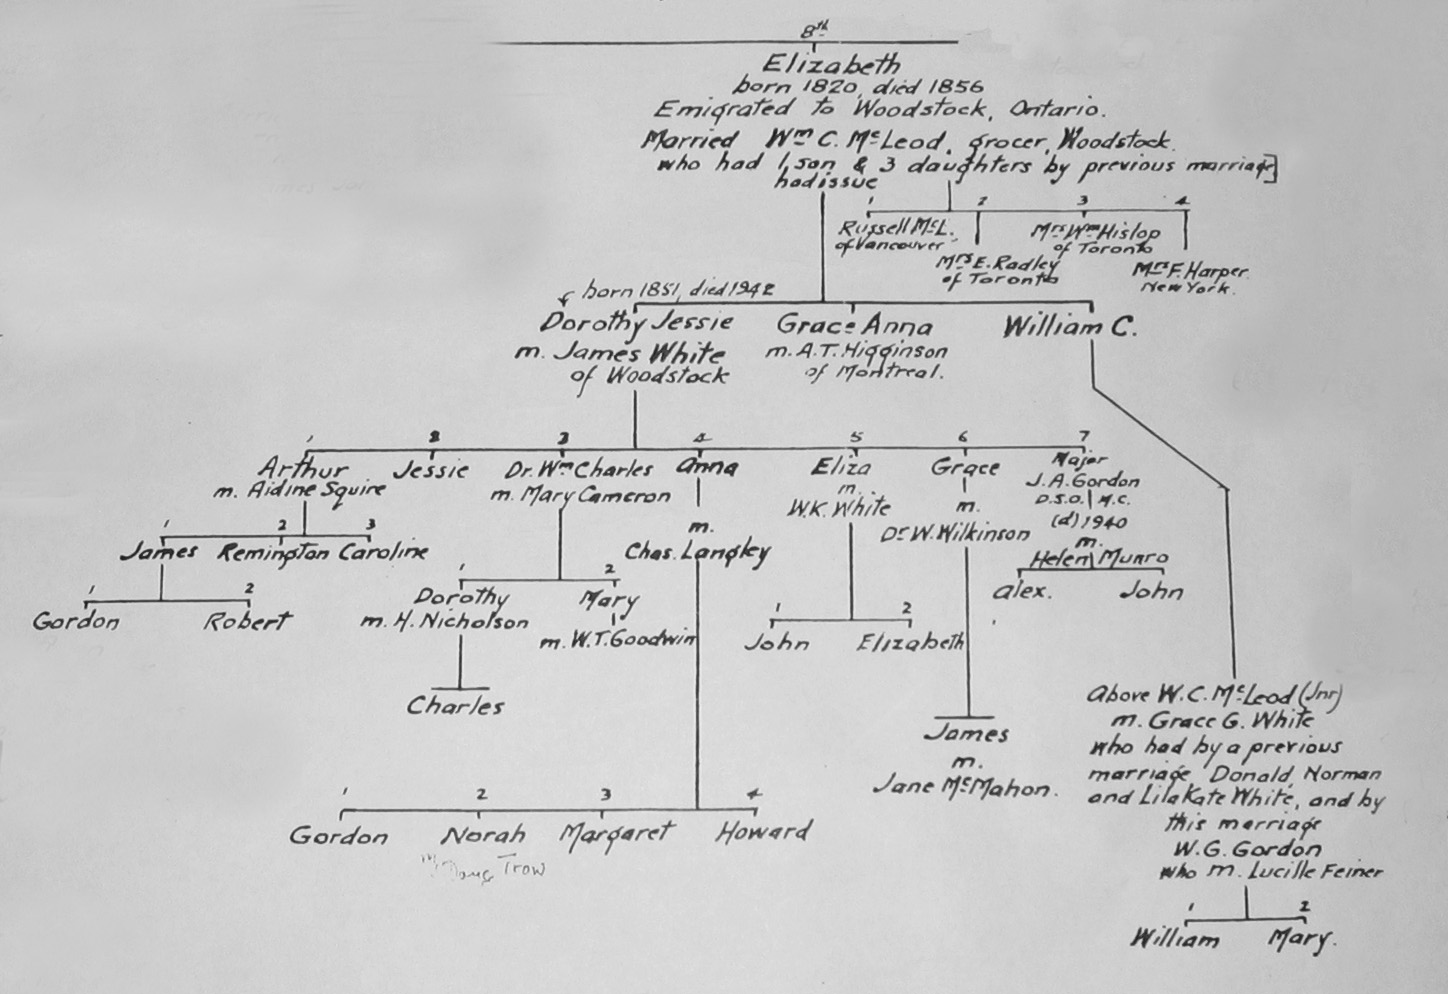 8th
Elizabeth
born 1820, died 1856
Emigrated to Woodstock, Ontario.
Married Wm C. McLeod, grocer, Woodstock.
who had 1 son & 3 daughters by previous marriage]
had issue
1 2 3 4
Russell McL.
of Vancouver
Mrs E. Radley
of Toronto
Mrs Wm Hislop
of Toronto
Mrs F. Harper.
New York.
born 1851, died 1942
Dorothy Jessie
m. James White
of Woodstock
Grace Anna
m. A.T. Higginson
of Montreal.
William C.
1 2 3 4 5 6 7
Arthur
m. Aidine Squire
Jessie
Dr. Wm Charles
m. Mary Cameron
Anna
m.
Chas. Langley
Eliza
m.
W.K. White
Grace
m.
Dr W. Wilkinson
Major
J.A. Gordon
D.S.O. M.C.
(d) 1940
m.
Helen Munro
1 2 3
James Remington Caroline
1 2
Gordon Robert
1 2
Dorothy
m. H. Nicholson
Mary
m. W.T. Goodwin
Charles
1 2
John Elizabeth
Alex. John
James
m.
Jane McMahon.
1 2 3 4
Gordon Norah Margaret Howard
Trow
Above W.C. McLeod (Jnr)
m. Grace G. White
who had by a previous
marriage, Donald, Norman
and Lila Kate White, and by
this marriage
W.G. Gordon
who m. Lucille Feiner
1 2
William Mary.